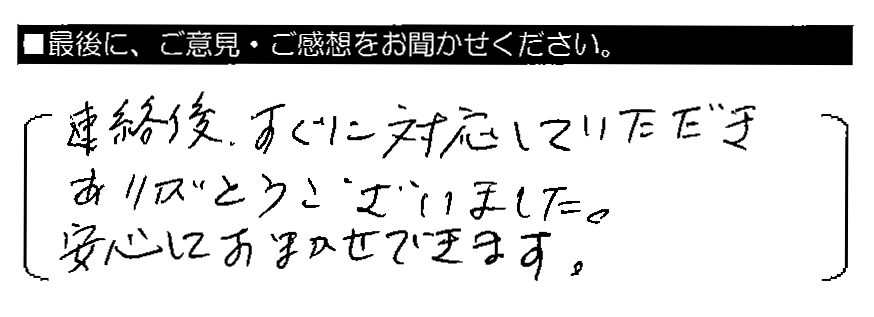 ■最後に、ご意見・ご感想をお聞かせください。
連絡後、すぐに対応していただき
ありがとうございました。
安心しておまかせできます。